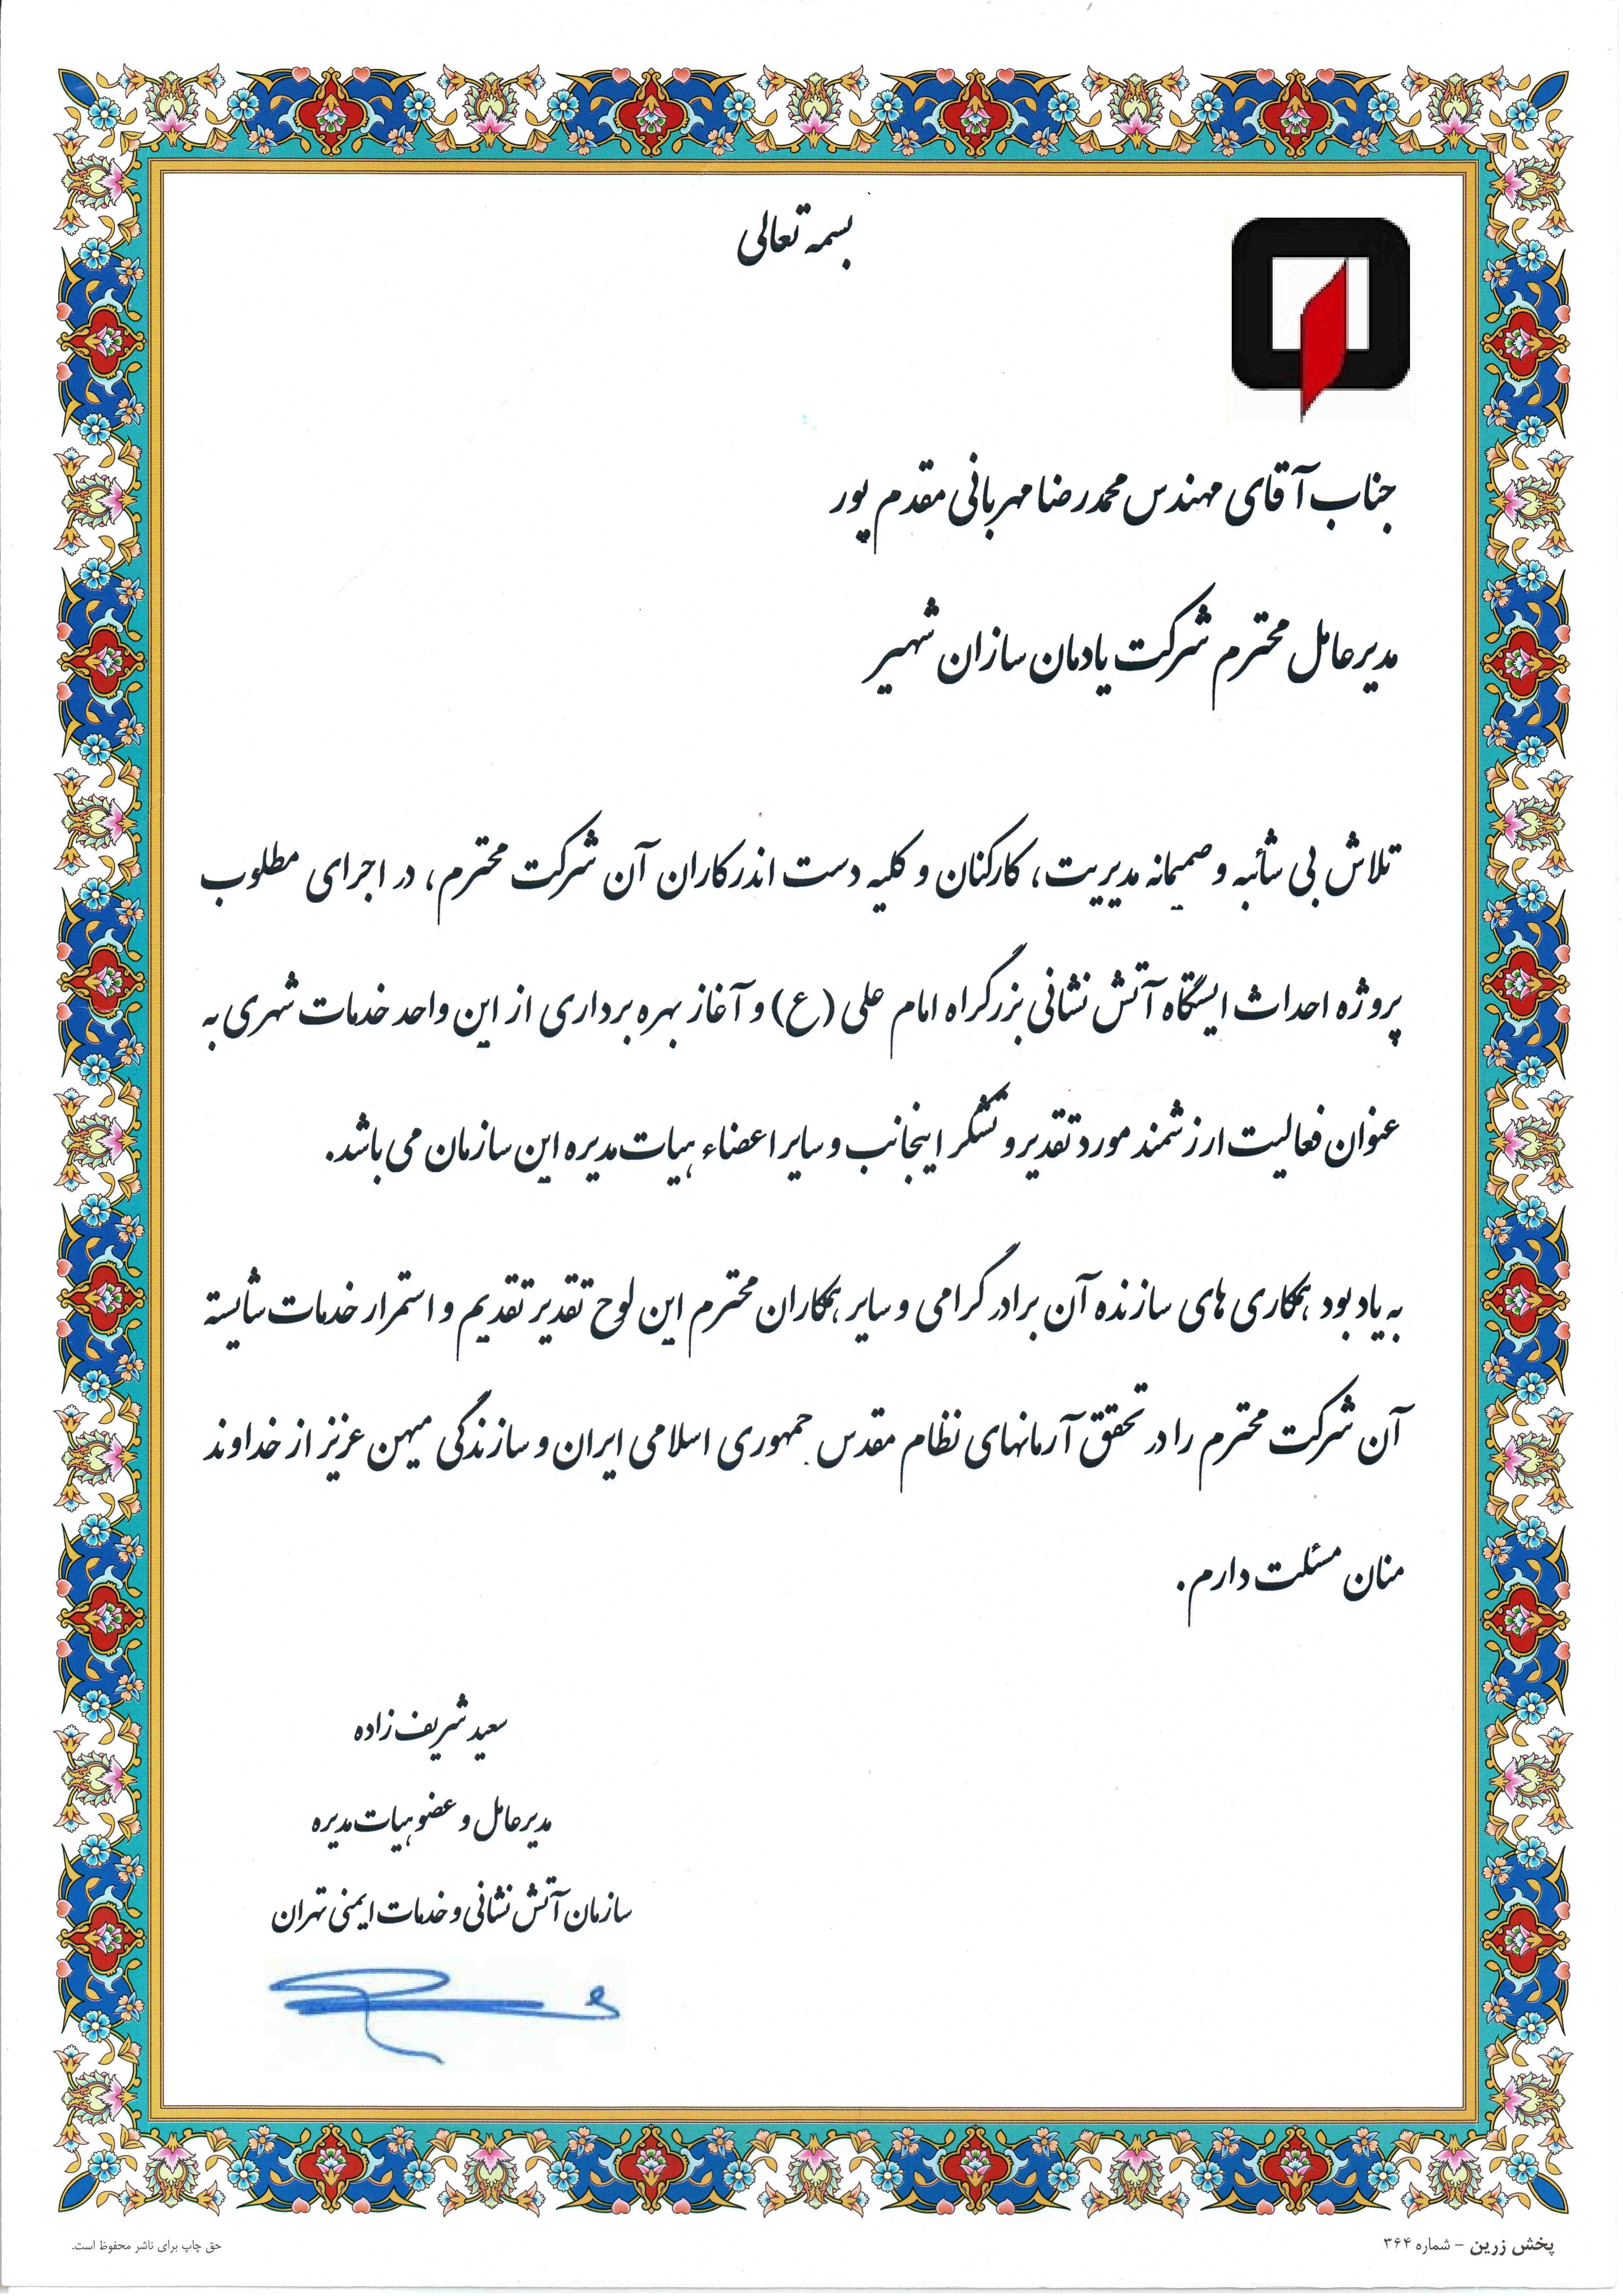 بسمه تعالی
جناب آقای مهندس محمدرضا مهربانی مقدم پور
مدیرعامل محترم شرکت یادمان سازان شهیر
تلاش بی شائبه و صمیمانه مدیریت، کارکنان و کلیه دست اندرکاران آن شرکت محترم، در اجرای مطلوب
پروژه احداث ایستگاه آتش نشانی بزرگراه امام علی (ع) و آغاز بهره برداری از این واحد خدمات شهری به
عنوان فعالیت ارزشمند مورد تقدیر و تشکر اینجانب و سایر اعضاء هیات مدیره این سازمان می باشد.
به یاد بود همکاری های سازنده آن برادر گرامی و سایر همکاران محترم این لوح تقدیر تقدیم و استمرار خدمات شایسته
آن شرکت محترم را در تحقق آرمانهای نظام مقدس جمهوری اسلامی ایران و سازندگی میهن عزیز از خداوند
منان مسئلت دارم.
سعید شریف زاده
مدیرعامل و عضو هیات مدیره
سازمان آتش نشانی و خدمات ایمنی تهران
پخش زرین - شماره ۳۶۴
حق چاپ برای ناشر محفوظ است.